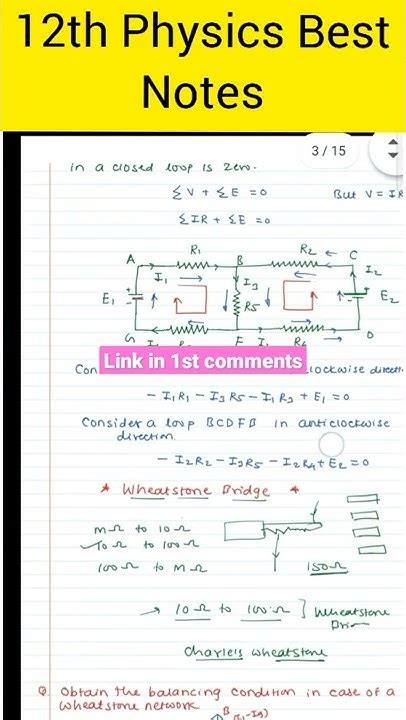 12th Physics Best
Notes
3 / 15
in a closed loop is zero.
Σ V + Σ E = 0 But V = IR
Σ IR + Σ E = 0
A R1 B R2 C
I1 I3 I2
E1 R5 E2
G F I1 R4 D
Link in 1st comments
Con lockwise directi
- I1R1 - I3R5 - I1R3 + E1 = 0
Consider a loop BCDFB in anticlockwise
direction.
- I2R2 - I3R5 - I2R4 + E2 = 0
* Wheatstone Bridge *
mΩ to 10Ω
10 Ω to 100Ω
100Ω to MΩ
150Ω
→ 10Ω to 100Ω } Wheatstone
Charles wheatstone
Q. Obtain the balancing condition in case of a
wheatstone network
B (I1-Ig)